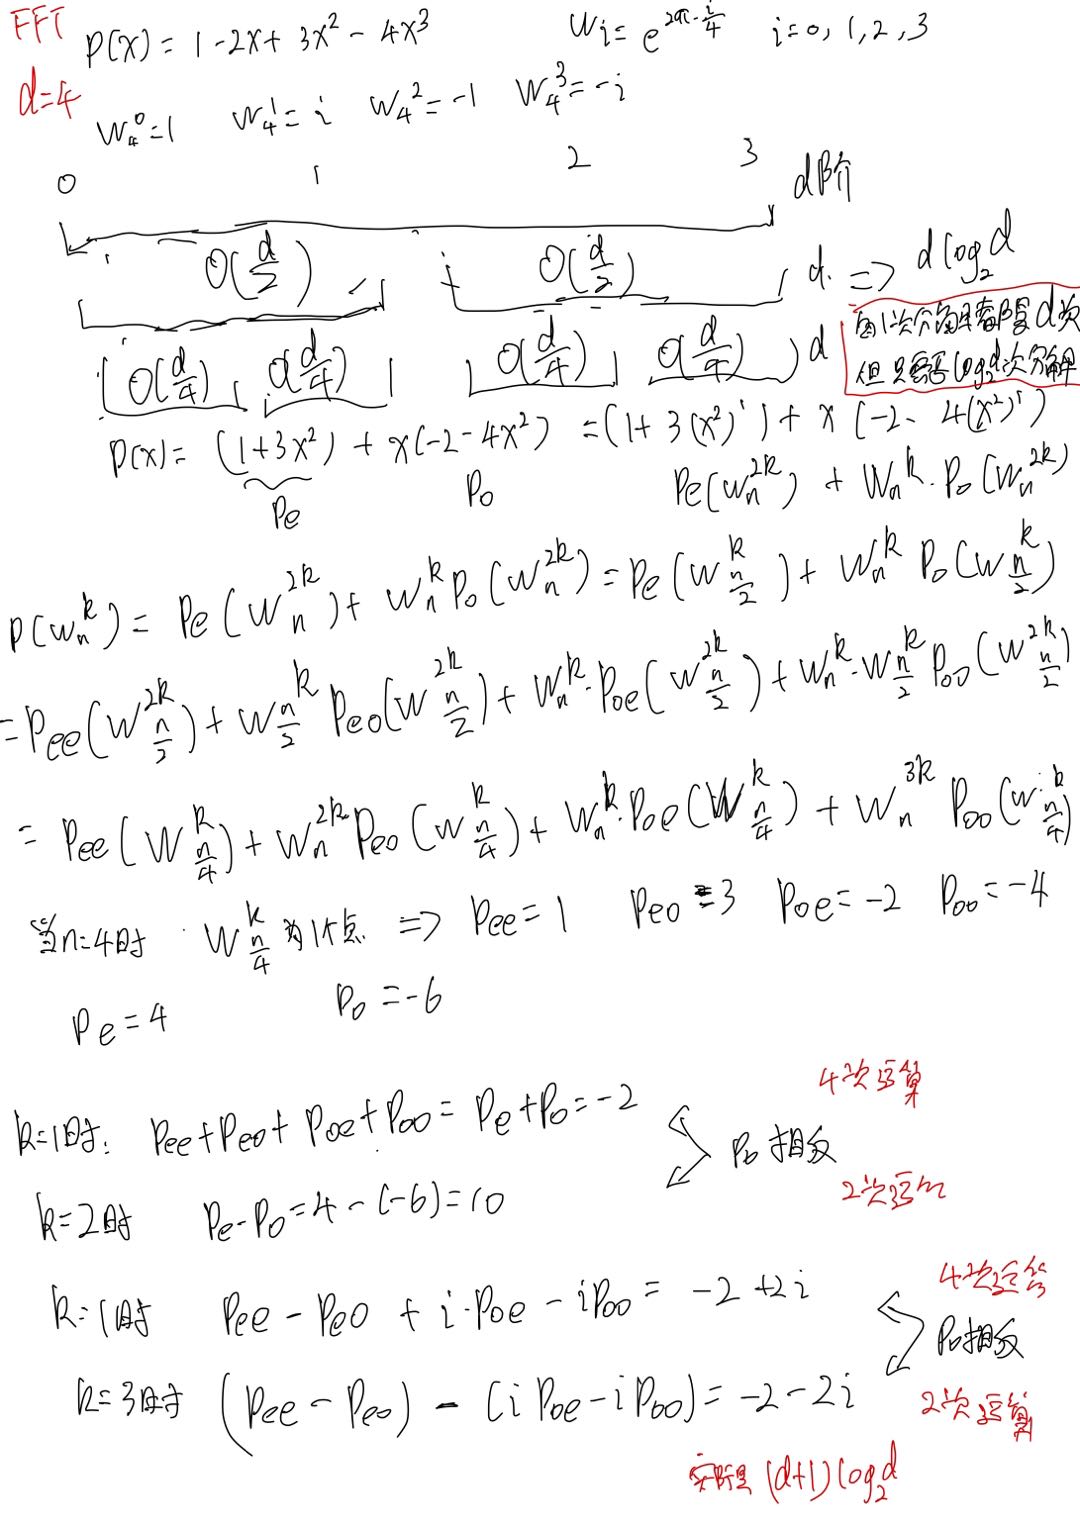 FFT P(x) = 1-2x+3x²-4x³ Wi = e^{2π·i/4} i=0,1,2,3
d=4
W₄⁰=1 W₄¹=i W₄²=-1 W₄³=-i
0 1 2 3 d阶
O(d/2) O(d/2) d. => d log₂d
O(d/4) O(d/4) O(d/4) O(d/4) d
每1次分解都需d次
但只需log₂d次分解
P(x) = (1+3x²) + x(-2-4x²) = (1+3(x²)¹) + x(-2-4(x²)¹)
Pe Po Pe(Wn^{2k}) + Wn^k·Po(Wn^{2k})
P(Wn^k) = Pe(Wn^{2k}) + Wn^k Po(Wn^{2k}) = Pe(W_{n/2}^k) + Wn^k Po(W_{n/2}^k)
= Pee(W_{n/2}^{2k}) + W_{n/2}^k Peo(W_{n/2}^{2k}) + Wn^k·Poe(W_{n/2}^{2k}) + Wn^k·W_{n/2}^k Poo(W_{n/2}^{2k})
= Pee(W_{n/4}^k) + Wn^{2k} Peo(W_{n/4}^k) + Wn^k·Poe(W_{n/4}^k) + Wn^{3k} Poo(W_{n/4}^k)
当n=4时 W_{n/4}^k 为1个点 => Pee=1 Peo=3 Poe=-2 Poo=-4
Pe=4 Po=-6
4次运算
k=1时: Pee+Peo+Poe+Poo = Pe+Po = -2
Po相反
2次运算
k=2时 Pe-Po=4-(-6)=10
4次运算
k=1时 Pee-Peo+i·Poe-iPoo = -2+2i
Po相反
k=3时 (Pee-Peo)-(iPoe-iPoo) = -2-2i
2次运算
实际是(d+1)log₂d